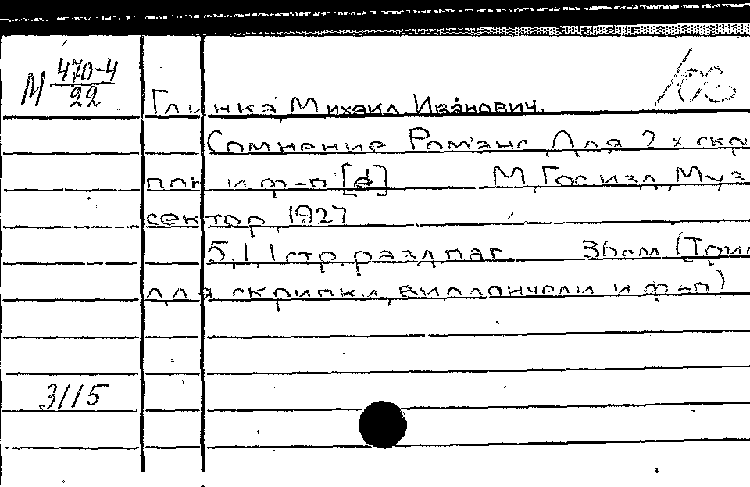 М 470-4
22
Глинка, Михаил Иванович.
Сомнение Романс Для 2 х скри
пок и ф-п [d] М, Гос изд, Муз
сектор, 1927
5, 1, 1 стр. разд паг 36см (Трио
для скрипки, виолончели и ф-п)
3115